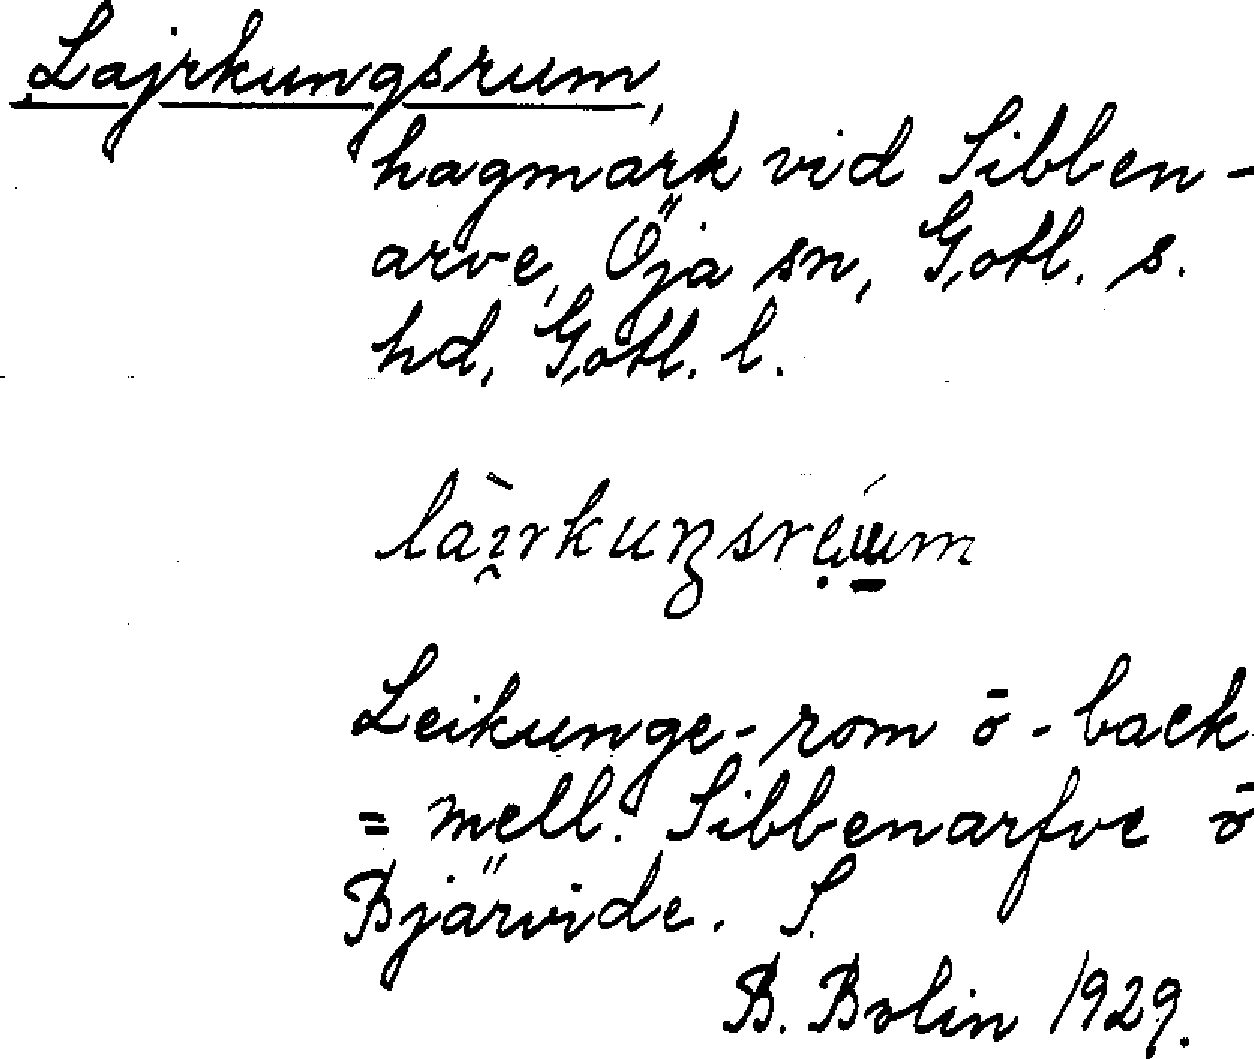 Lajrkungsrum,
hagmark vid Sibben-
arve, Öja sn, Gotl. s.
hd, Gotl. l.
Leikunge-rom ō - back
= mell. Sibbenarfve ō
Bjärvide. S.
B. Bolin 1929.